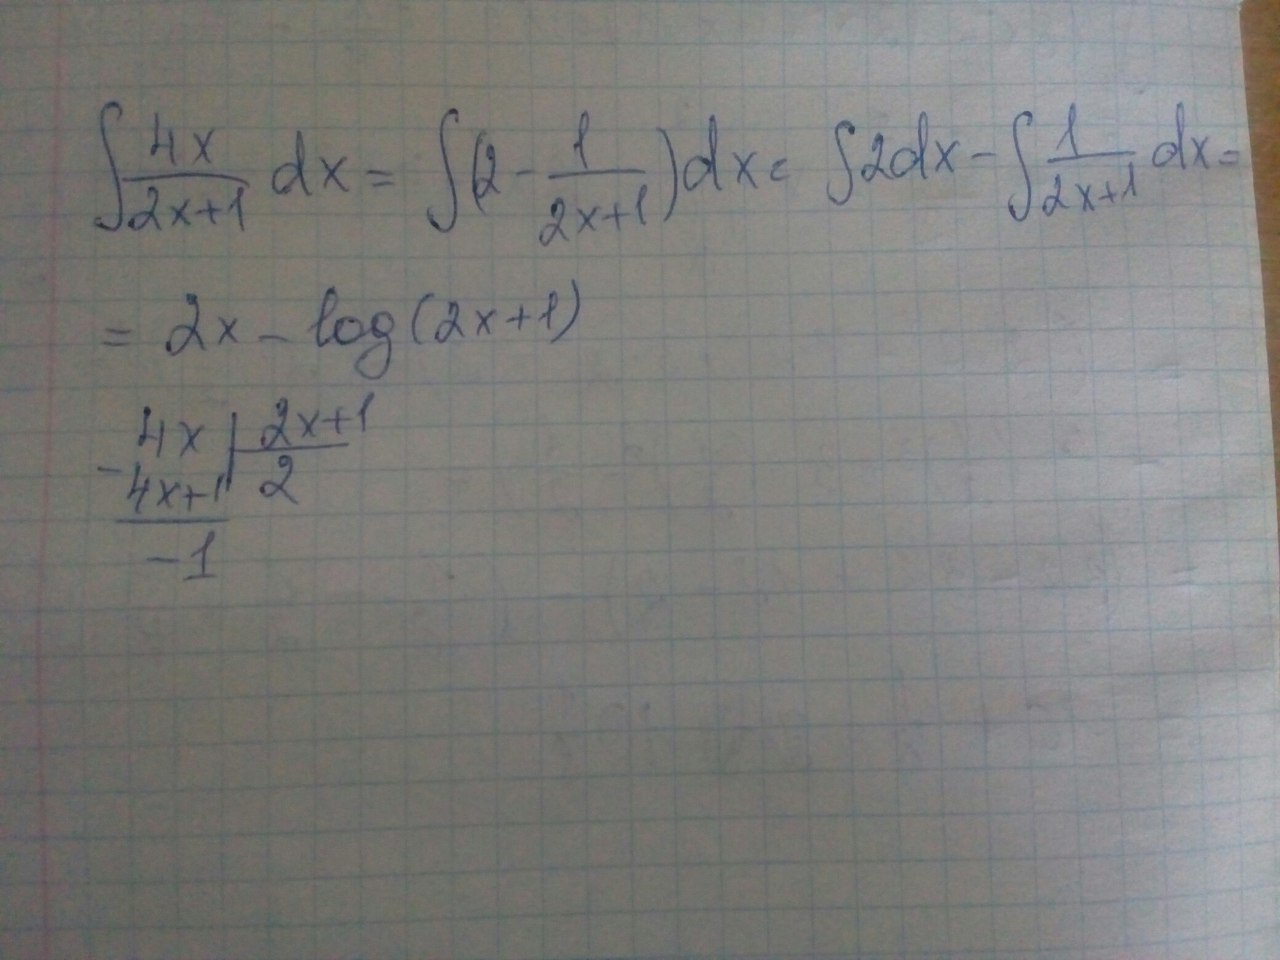 ∫ 4x/(2x+1) dx = ∫(2 - 1/(2x+1))dx = ∫2dx - ∫ 1/(2x+1) dx =
= 2x - log(2x+1)
4x | 2x+1
- 4x+1 | 2
-1